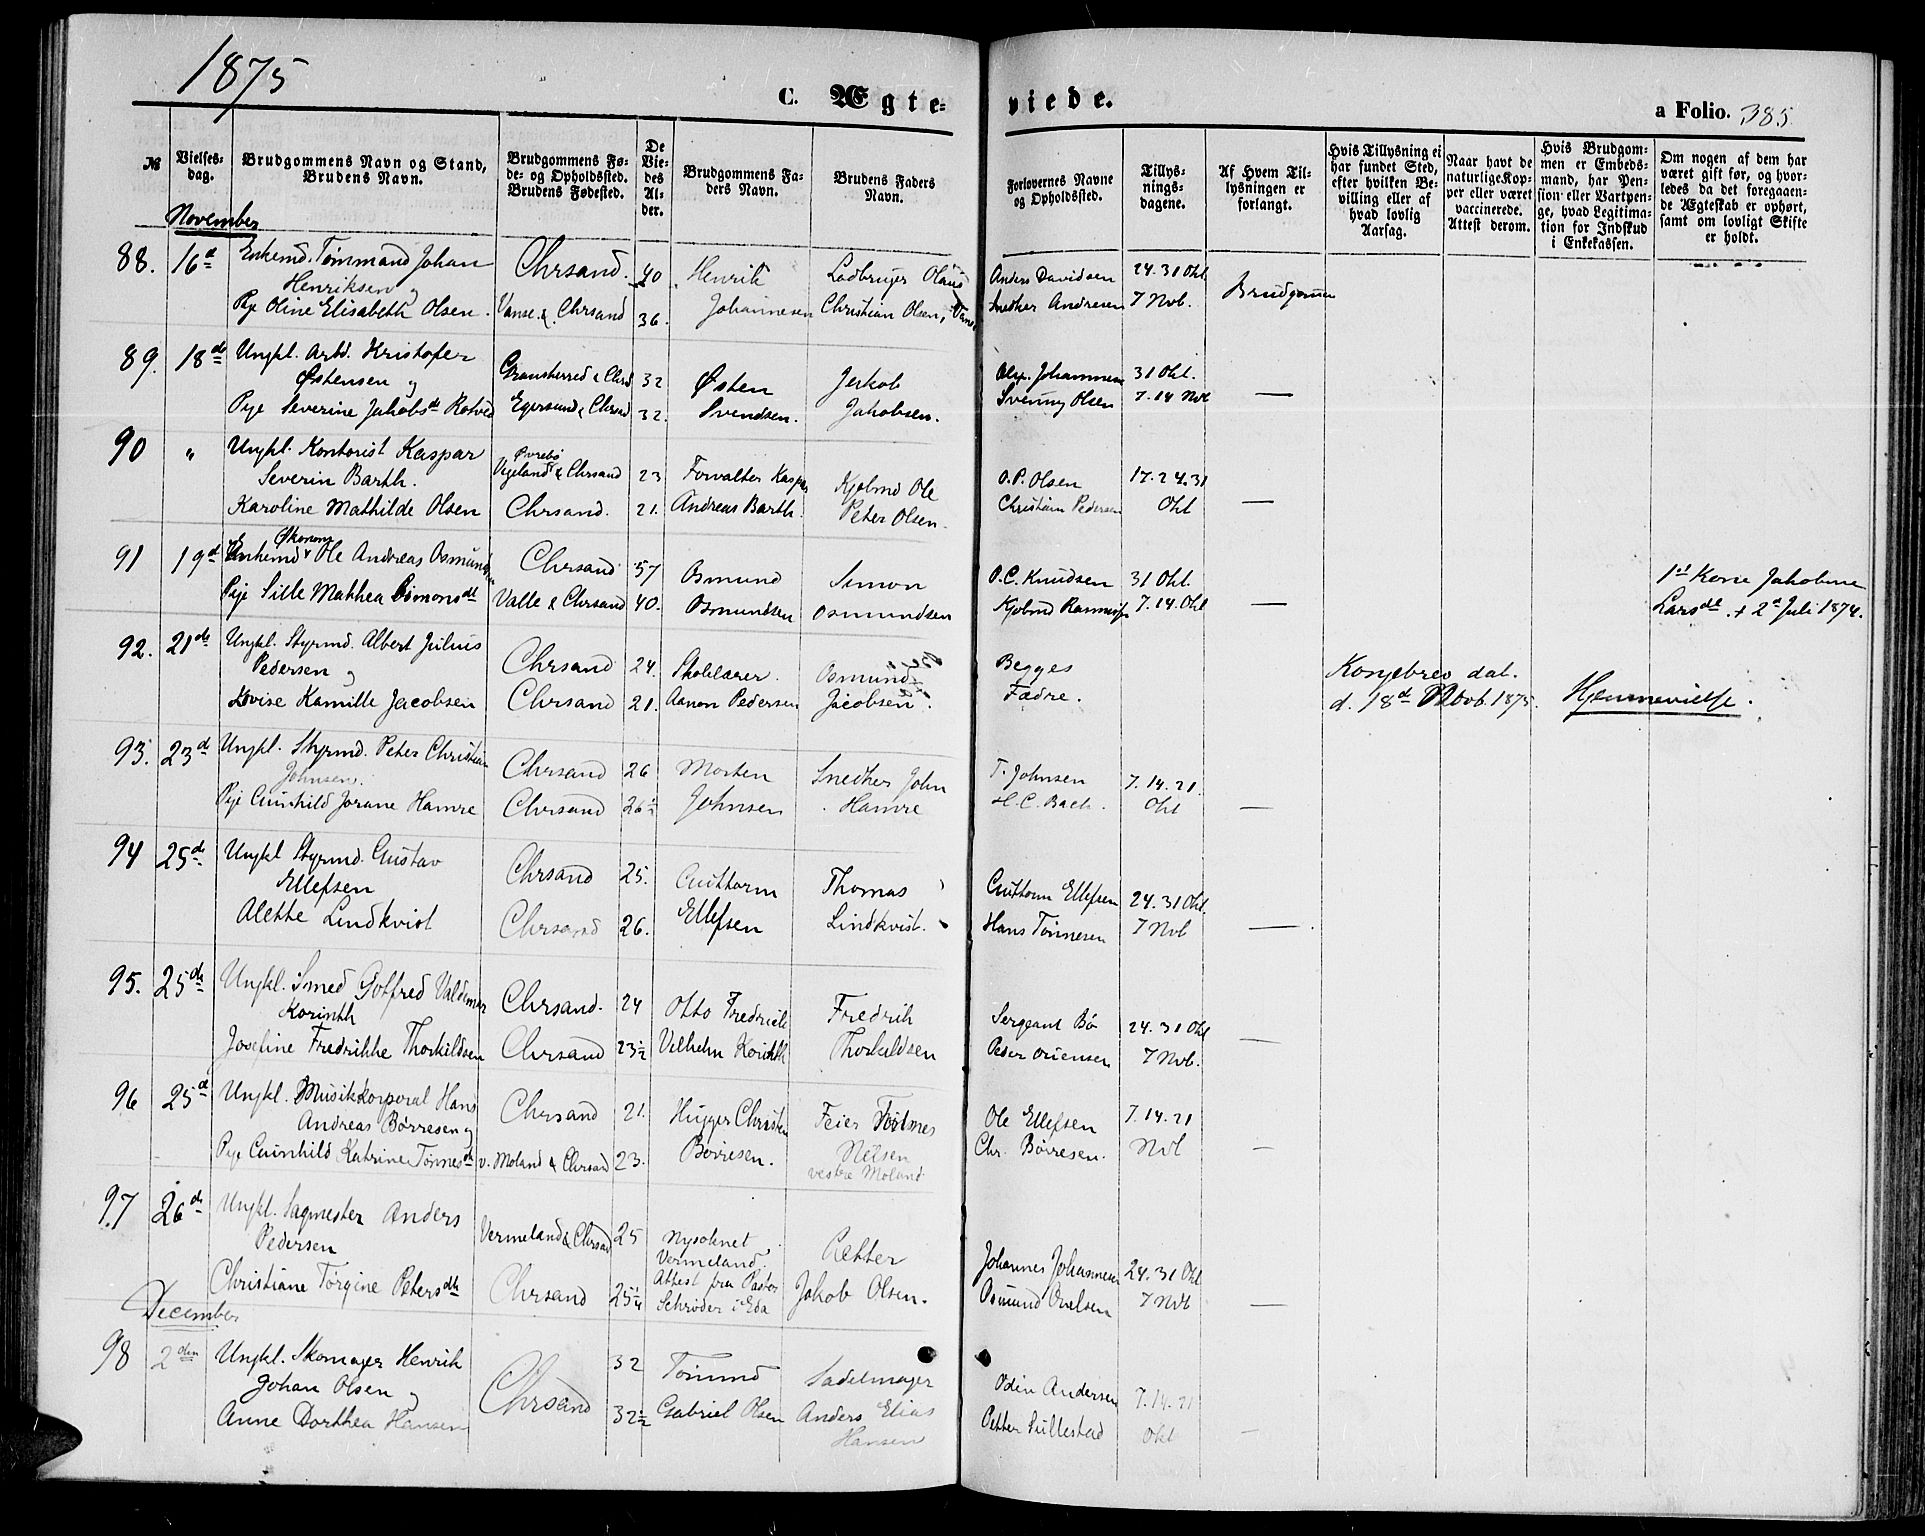 1875
C. Ægte-
viede.
a Folio. 385
№
Vielses-
dag.
Brudgommens Navn og Stand,
Brudens Navn.
Brudgommens Fø-
de- og Opholdssted.
Brudens Fødested.
De
Vie-
des
Al-
der.
Brudgommens Fa-
ders Navn.
Brudens Faders
Navn.
Forlovernes Navne
og Opholdssted.
Tillys-
nings-
dagene.
Af Hvem Til-
lysningen er
forlangt.
Hvis Tillysning ei
har fundet Sted,
efter hvilken Be-
villing eller af
hvad lovlig
Aarsag.
Naar havt de
naturlige Kop-
per eller været
vaccinerede.
Attest derom.
Hvis Brudgom-
men er Embeds-
mand, har Pen-
sion eller Vartpen-
ge, hvad Legitima-
tion for Indskud
i Enkekassen.
Om nogen af dem har
været gift før, og hvor-
ledes da det foregaaen-
de Ægteskab er ophørt,
samt om lovligt Skifte
er holdt.
November
88. 16d Enkemd. Tømmand Johan Chrsand. 40 Henrik Lodbruger Olaus Anders Davidsen 24. 31 Okt
Henriksen og
Pige Oline Elisabeth Olsen. Vanse & Chrsand 36. Johannesen Christian Olsen, Vanse Snedker Andresen 7 Nvb. Brudgommen
89. 18de Ungkl. Arbd. Kristofer Gransherred & Chrsd 32 Østen Jakob Olr. Johannesen 31 Okt.
Østensen og
Pige Severine Jakobsd Rotved Egersund & Chrsand 32. Svendsen. Jakobsen. Svenning Olsen 7. 14 Nvb —
90 " Ungkl. Kontorist Kaspar Øvrebø
Severin Barth. Vegeland & Chrsand 23 Forvalter Kaspar Kjøbmd Ole O. P. Olsen 17. 24. 31
Karoline Mathilde Olsen Chrsand. 21. Andreas Barth. Peter Olsen. Christian Pedersen Okt —
Økonom
91 19d Enkemd Ole Andreas Osmundsen Chrsand 57 Osmund Simon O. C. Knudsen 31 Okt. 1st Kone Jakobine
Pige Sille Mathea Simonsdt Valle & Chrsand 40. Osmundsen Osmundsen Kjøbmd Rasmussen 7. 14. Okt — Larsdt. + 2d Juli 1874.
92. 21de Ungkl. Styrmd. Albert Julius Chrsand 24. Skolelærer Osmund Begges Kongebrev dat.
Pedersen og
Lovise Kamille Jacobsen Chrsand 21. Aanon Pedersen Jacobsen. Fædre. d. 18d Novb. 1875. Hjemmevielse.
93. 23d Ungkl. Styrmd. Peter Christian Chrsand 26 Morten Snedker John T. Johnsen 7. 14. 21.
Johnsen.
Pige Gunhild Jorane Hamre Chrsand 26½ Johnsen Hamre H. C. Bach. Okt —
94 25de Ungkl Styrmd. Gustav Chrsand 25. Gutthorm Thomas Gutthorm Ellefsen 24. 31 Okt.
Ellefsen
Alette Lindkvist Chrsand 26. Ellefsen Lindkvist. Hans Tønnesen 7 Nvb —
95. 25de Ungkl. Smed Gotfred Valdemar Chrsand. 24 Otto Fredrick Fredrik Sergeant Bø 24. 31 Okt
Korinth
Josefine Fredrikke Thorkildsen Chrsand 23½ Vilhelm Korinth Thorkildsen Peder 7 Nvb. —
96 25d Ungkl. Musikkorporal Hans Chrsand 21. Hugger Christen Feier Tønnes Ole Ellefsen 7. 14. 21
Andreas Børresen og
Pige Gunhild Katrine Tønnesdt v. Moland & Chrsand 23. Børresen. Nilsen Chr. Børresen. Nvb —
vestre Moland
97 26de Ungkl. Sagmester Anders Vermeland & Chrsand 25 Nysoknet, Retter
Pedersen Vermeland. Johannes Johannesen 24. 31 Okt
Christiane Torgine Petersdtt Chrsand 25¼ Attest fra Pastor Jakob Olsen. Osmund 7 Nvb —
Schrøder i Eda
December
98 2den Ungkl. Skomager Henrik Chrsand 32 Tømmd Sadelmager Odin Andersen 7. 14. 21
Johan Olsen og
Anne Dorthea Hansen 32½ Gabriel Olsen Anders Elias Petter Sullestad Okt —
Hansen